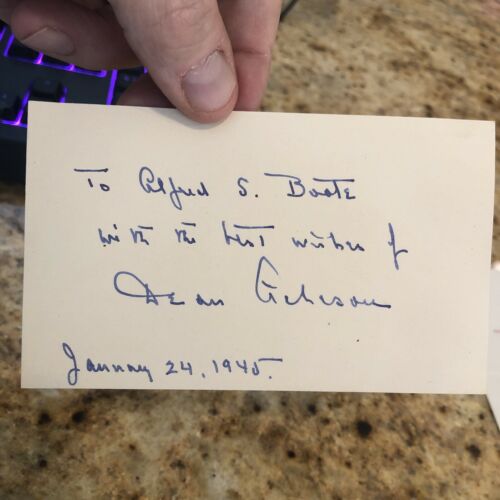 To Alfred S. Boote
with the best wishes of
Dean Acheson
January 24, 1945.